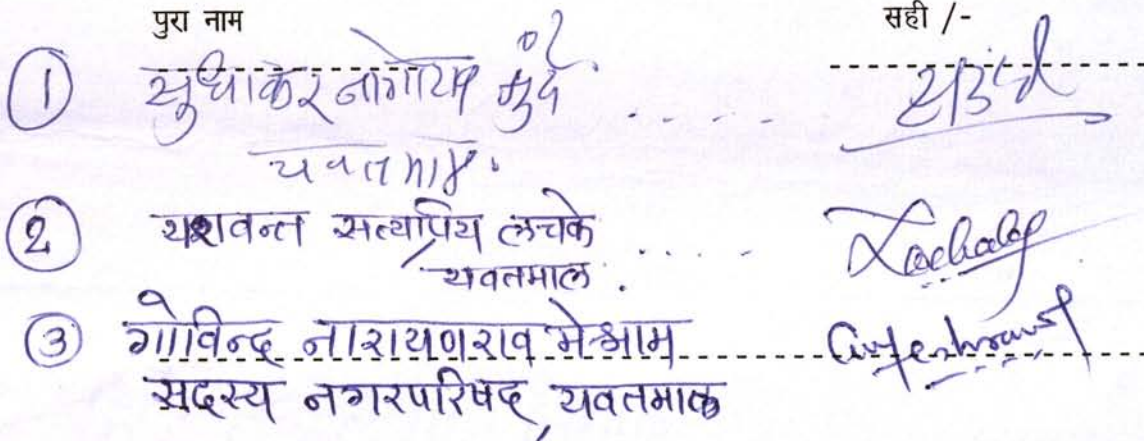 पुरा नाम सही /-
① सुधाकर नागोराव मुंदे
यवतमाळ.
② यशवन्त सत्यप्रिय लचके
यवतमाल.
③ गोविन्द नारायणराव मेश्राम
सदस्य नगरपरिषद, यवतमाळ